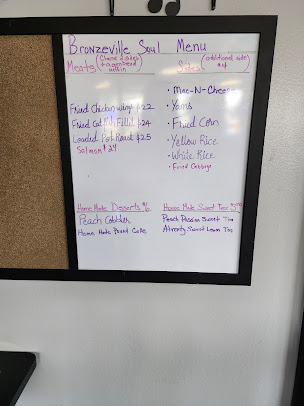 Bronzeville Soul Menu
Meats (Choose 2 sides
Sides (additional sides
Mac-N-Cheese
Yams
Fried Chicken wings $22
Fried Catfish Fillet $24
Fried Corn
Loaded Pot Roast $25
Yellow Rice
Salmon $24
White Rice
Fried Cabbage
Home Made Desserts
Home Made Sweet Teas
Peach Cobbler
Peach Passion Sweet Tea
Home Made Pound Cake
Already Sweet Lemon Tea